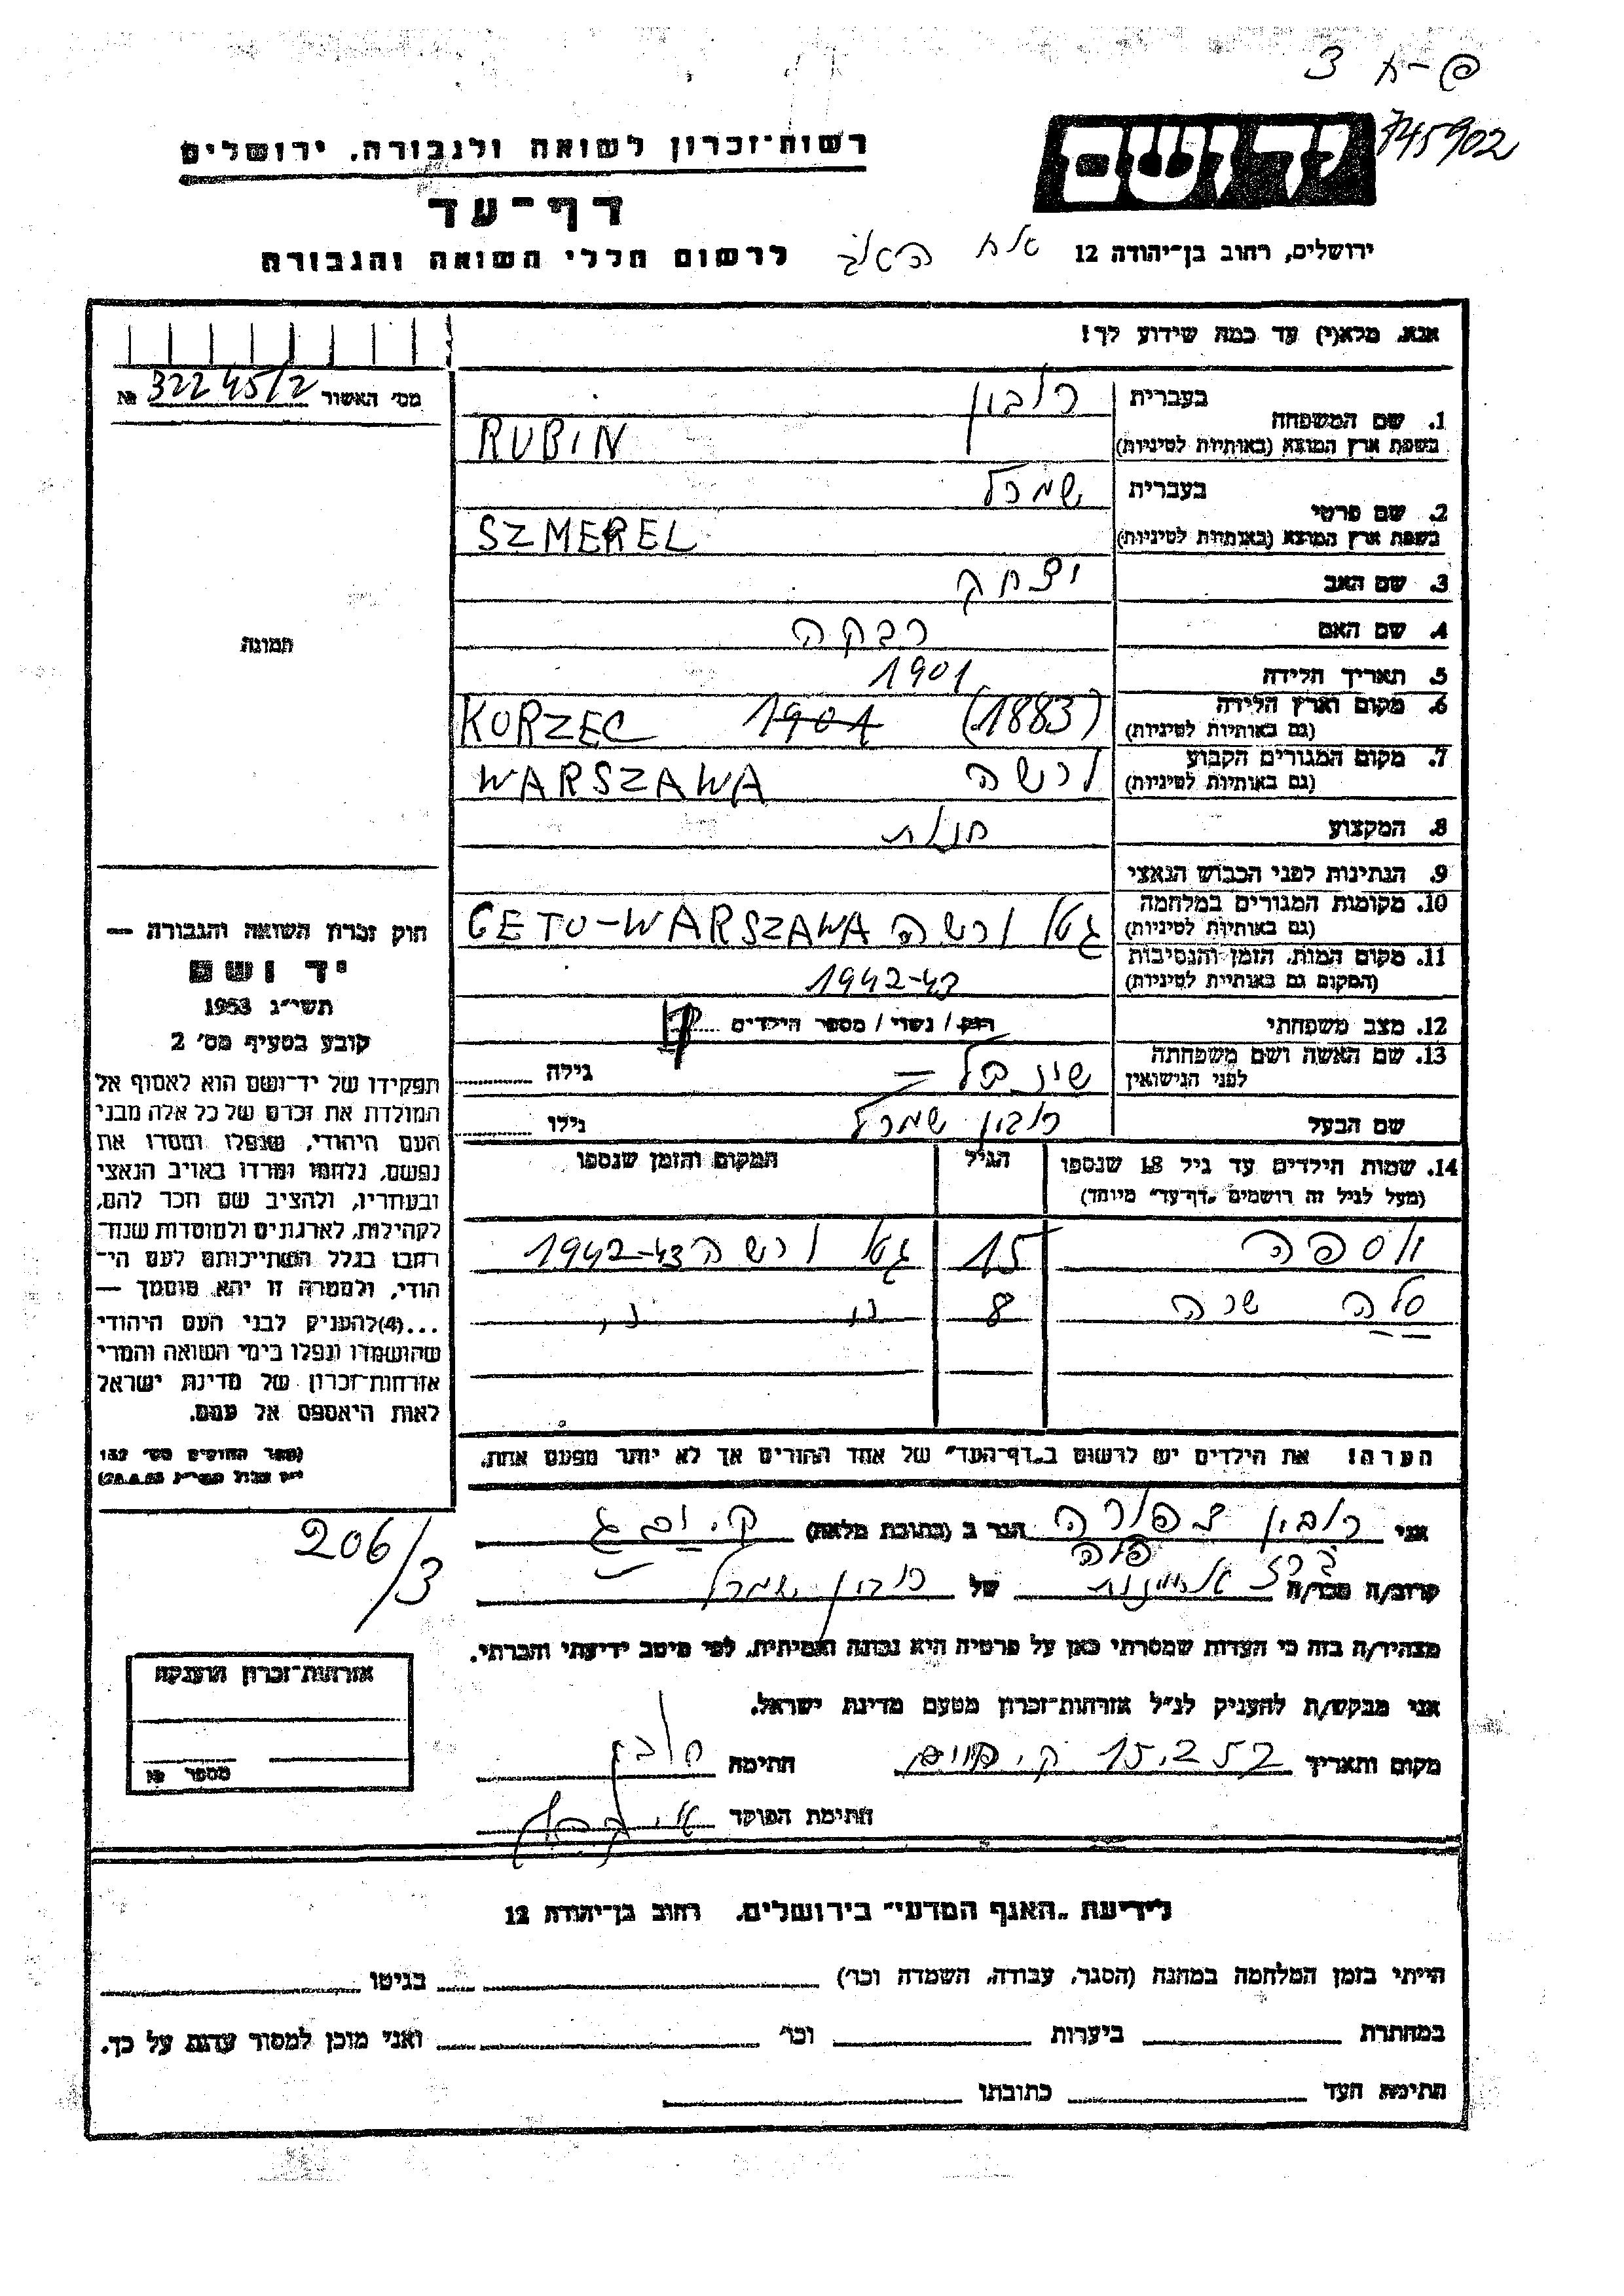 פ-א 3
745902
יד ושם
רשות־זכרון לשואה ולגבורה, ירושלים
דף־עד
ירושלים, רחוב בן־יהודה 12
לרשום חללי השואה והגבורה
אנא, מלא(י) עד כמה שידוע לך!
מס׳ האשור 322 45/2 №
1. שם המשפחה
בעברית רובין
בשפת ארץ המוצא (באותיות לטיניות) RUBIN
2. שם פרטי
בעברית שמרל
בשפת ארץ המוצא (באותיות לטיניות) SZMEREL
3. שם האב יצחק
4. שם האם רבקה
5. תאריך הלידה 1901
6. מקום וארץ הלידה (1883) 1901 KORZEC
(גם באותיות לטיניות)
7. מקום המגורים הקבוע ורשה WARSZAWA
(גם באותיות לטיניות)
8. המקצוע
9. הנתינות לפני הכבוש הנאצי
10. מקומות המגורים במלחמה גטו ורשה GETO-WARSZAWA
(גם באותיות לטיניות)
11. מקום המות, הזמן והנסיבות 1942-43
(המקום גם באותיות לטיניות)
12. מצב משפחתי רוק / נשוי / מספר הילדים
13. שם האשה ושם משפחתה
לפני הנישואין
גילה
שם הבעל רובין שמרל גילו
14. שמות הילדים עד גיל 18 שנספו
(מעל לגיל זה רושמים „דף־עד" מיוחד)
הגיל
המקום והזמן שנספו
15 גטו ורשה 1942-43
סלה שרה 8
הערה! את הילדים יש לרשום ב„דף־העד" של אחד ההורים אך לא יותר מפעם אחת.
תמונה
חוק זכרון השואה והגבורה —
יד ושם
תשי״ג 1953
קובע בסעיף מס׳ 2
תפקידו של יד־ושם הוא לאסוף אל
המולדת את זכרם של כל אלה מבני
העם היהודי, שנפלו ומסרו את
נפשם, נלחמו ומרדו באויב הנאצי
ובעוזריו, ולהציב שם וזכר להם,
לקהילות, לארגונים ולמוסדות שנח־
רבו בגלל השתייכותם לעם הי־
הודי, ולמטרה זו יהא מוסמך —
...(4)להעניק לבני העם היהודי
שהושמדו ונפלו בימי השואה והמרי
אזרחות־זכרון של מדינת ישראל
לאות היאספם אל עמם.
(ספר החוקים מס׳ 132
206/3
אני רובין צפורה הגר ב (כתובת מלאה)
קרוב/ה מכר/ה של רובין שמרל
מצהיר/ה בזה כי העדות שמסרתי כאן על פרטיה היא נכונה ואמיתית, לפי מיטב ידיעתי והכרתי.
אני מבקש/ת להעניק לנ״ל אזרחות־זכרון מטעם מדינת ישראל.
מקום ותאריך 15.2.57 חתימה רובין
חתימת הפוקד
אזרחות־זכרון הוענקה
מספר №
לידיעת „האגף המדעי" בירושלים, רחוב בן־יהודה 12
הייתי בזמן המלחמה במחנה (הסגר, עבודה, השמדה וכו׳) בגיטו
במחתרת ביערות וכו׳ ואני מוכן למסור עדות על כך.
חתימת העד כתובתו